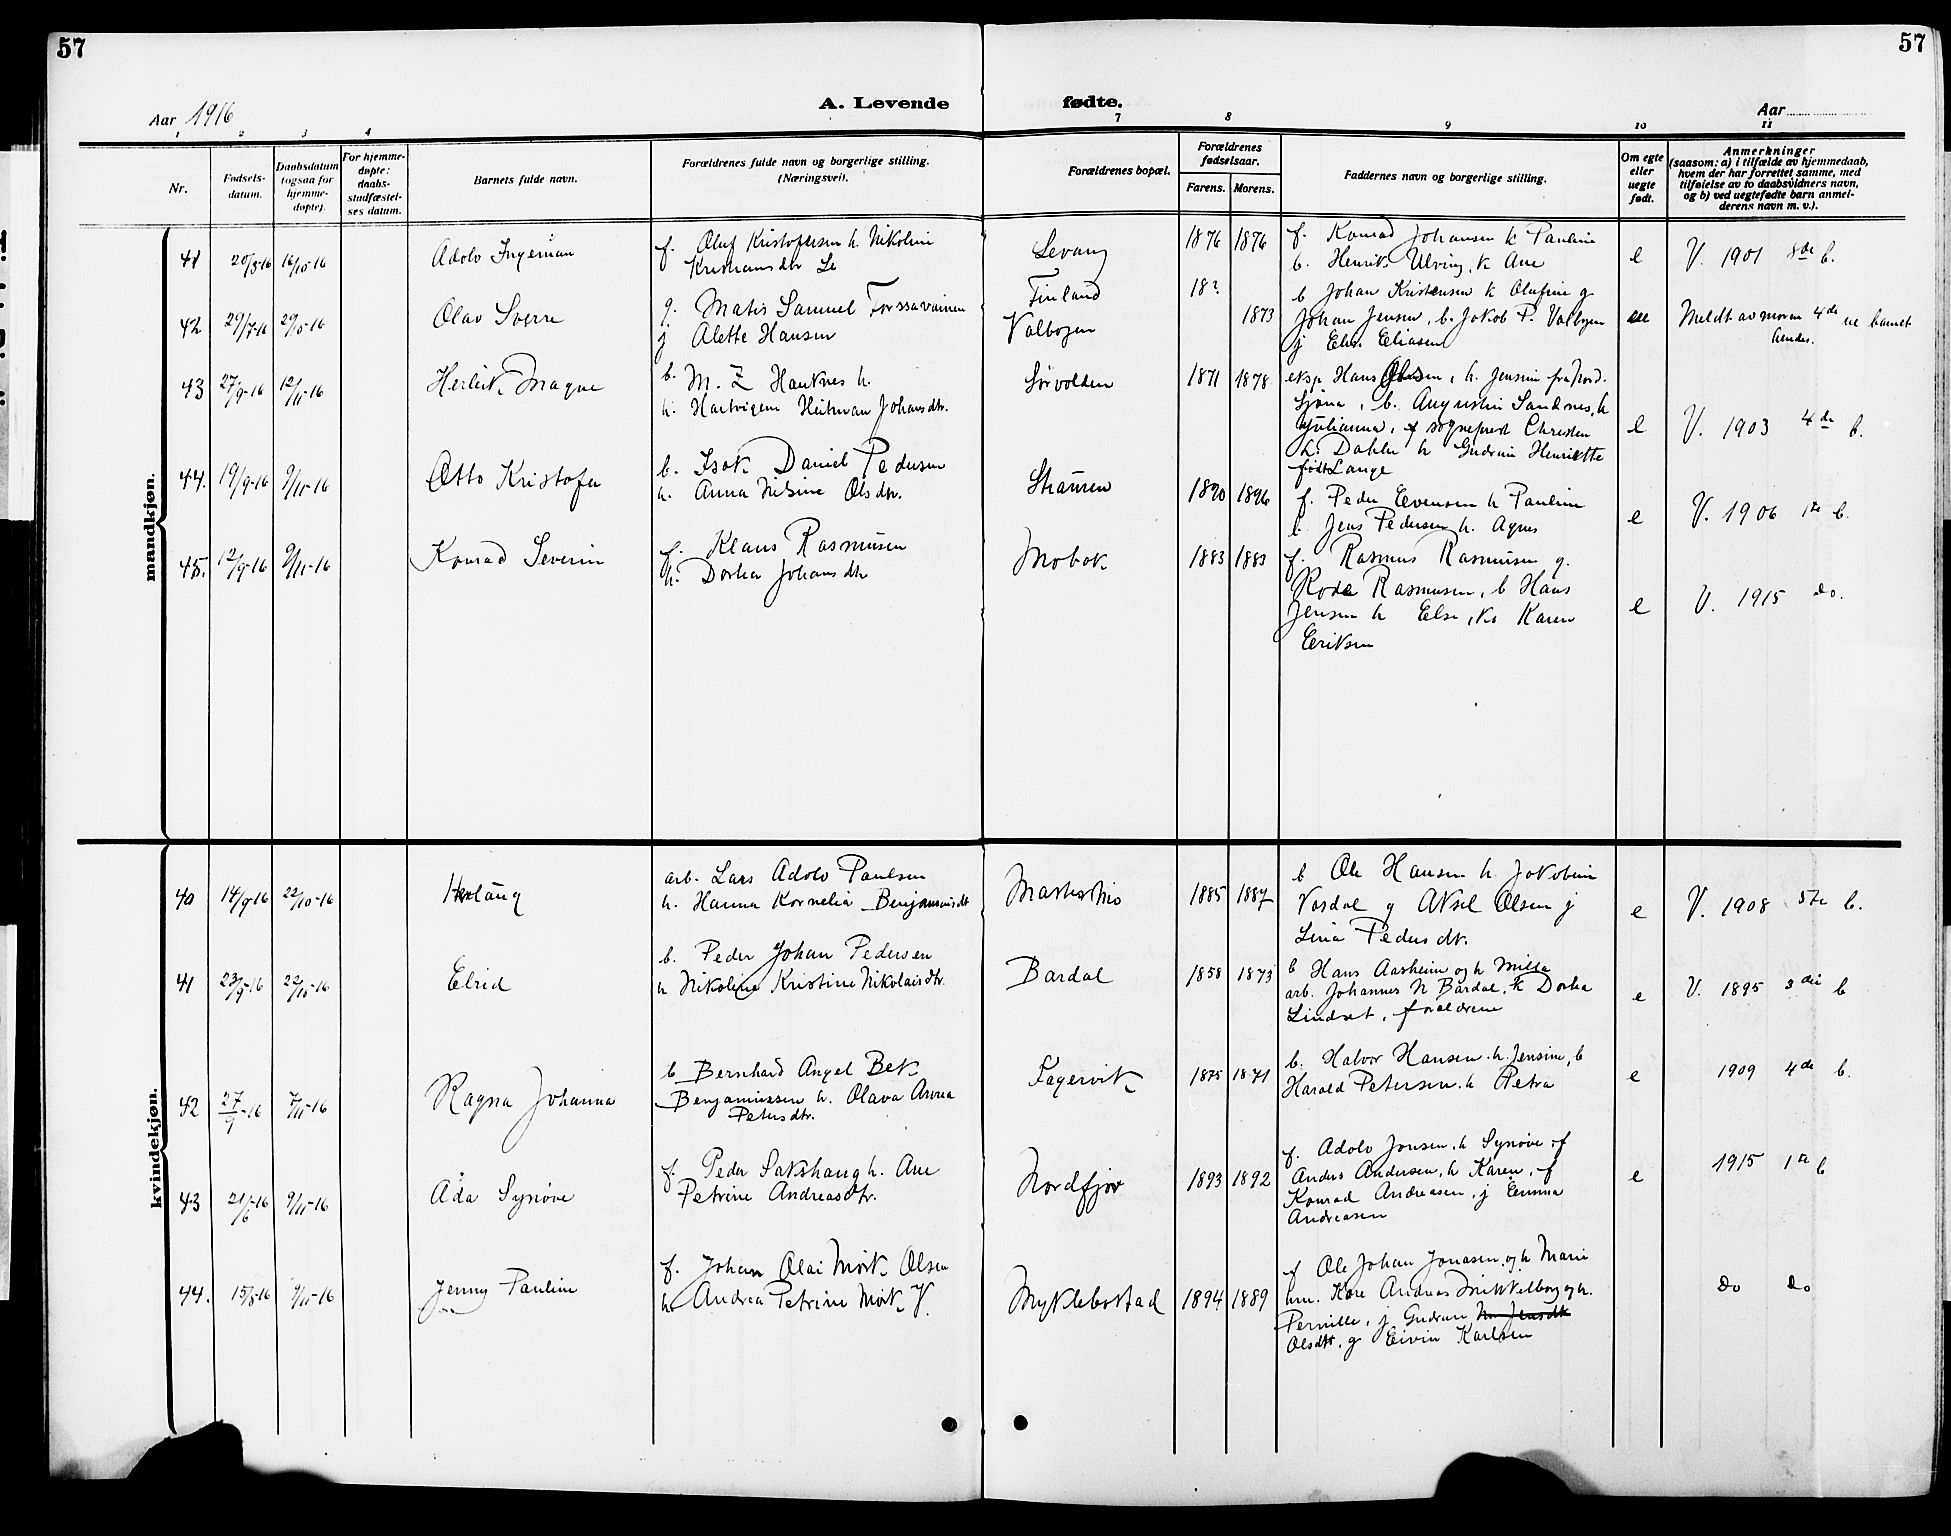 57
57
Aar 1916
A. Levende fødte.
Aar
1 2 3 4 7 8 9 10 11
Nr.
Fødsels-
datum.
Daabsdatum
(ogsaa for
hjemme-
døpte).
For hjemme-
døpte:
daabs-
stadfæstel-
ses datum.
Barnets fulde navn.
Forældrenes fulde navn og borgerlige stilling.
(Næringsvei).
Forældrenes bopæl.
Forældrenes
fødselsaar.
Farens. Morens.
Faddernes navn og borgerlige stilling.
Om egte
eller
uegte
født.
Anmerkninger
(saasom: a) i tilfælde av hjemmedaab,
hvem der har forrettet samme, med
tilføielse av to daabsvidners navn,
og b) ved uegtefødte barn anmel-
derens navn m. v.).
mandkjøn.
41 20/8-16 16/10-16 Adolv Ingeman
f. Oluf Kristofersen h. Nikoline
Kristiansdtr
Levang 1876 1876
f. Konrad Johansen h Pauline
b. Henrik Ulving, k Ane
e V. 1901 8de b.
42 29/7-16 29/10-16 Olav Sverre
g. Matis Samuel Forssavainen
j Alette Hansen
Finland
Valbogen
18? 1873
b Johan Kristensen h Olufine g
Johan Jensen, b. Jakob P. Valbogen
j Elen Eliasen
ue Meldt av moren 4de ue barnet
hendes.
43 27/9-16 12/11-16 Herleik Magne
b. M. Z Hauknes h.
h. Hartvigem Heitman Johansdtr.
Sørvolden 1871 1878
eksp Hans Olsen, h. Jensine fra Nord-
Sjona, b. Augustin Sandnes, h
Julianna, f sogneprest Christen
L. Dahler h Gudrun Henriette
født Lange
e V. 1903 4de b.
44. 19/9-16 9/11-16 Otto Kristofer
b. Isak Daniel Pedersen
h. Anna Nilsine Olsdtr.
Straumen 1890 1896
f. Peder Evensen h Pauline
b. Jens Pedersen h. Agnes
e V. 1906 1te b.
45. 12/9-16 9/11-16 Konrad Severin
f. Klaus Rasmusen
h. Dorthea Johansdtr
Mobæk 1883 1883
f. Rasmus Rasmusen g.
Rode Rasmusen, b Hans
Jensen h Else, k Karen
Eriksen
e V. 1915 do.
kvindekjøn.
40 14/9-16 22/10-16 Herlaug
arb. Lars Adolv Paulsen
h. Hanna Kornelia Benjaminsdt
Masternes 1885 1887
b Ole Hansen h. Jakobine
Nosdal g Aksel Olsen j
Lina Pedersdtr.
e V. 1908 5te b.
41 23/9-16 22/10-16 Elrid
b. Peder Johan Pedersen
h Nikoline Kristine Nikolaisdtr.
Bardal 1858 1873
b Hans Aasheim og h Milla
arb. Johannes N Bardal, k Dorthea
Lindset, forældrene
e V. 1895 3die b
42 27/9-16 7/11-16 Ragna Johanna
b Bernhard Angel Bek
Benjaminsen h. Olava Anna
Petersdtr.
Fagervik 1875 1871
b. Halvor Hansen. h. Jensine, b
Harald Petersen, h Petra
e 1909 4de b.
43 21/6-16 9/11-16 Åda Synøve
f. Peder Sakshaug h. Ane
Petrine Andreasdtr.
Nordfjor 1893 1892
f. Adolv Jonsen, h Synøve, f
Anders Andersen, h Karen, f
Konrad Andreasen, j Emma
Andreasen
e 1915 1te b
44. 15/8-16 9/11-16 Jenny Pauline
f. Johan Olai Mørk Olsen
h. Andrea Petrine Mørk V.
Myklebostad 1894 1889
f Ole Johan Jonasen, og h Marie
Kore Andreas og h.
Pernille, j Gudrun
Olsdtr, g Eivin Karlsen
do do